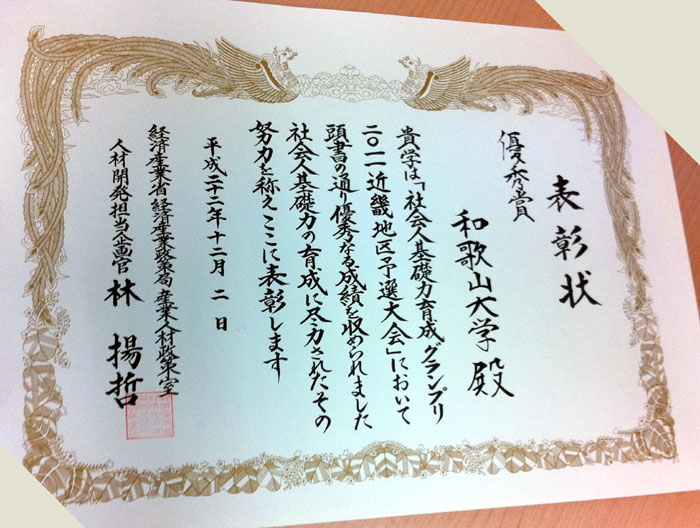 表彰状
優秀賞
和歌山大学殿
貴学は「社会人基礎力育成グランプリ
二〇一一近畿地区予選大会」において
頭書の通り優秀なる成績を収められました
社会人基礎力の育成に尽力されたその
努力を称えここに表彰します
平成二十二年十二月二日
経済産業省経済産業政策局産業人材政策室
人材開発担当企画官 林揚哲